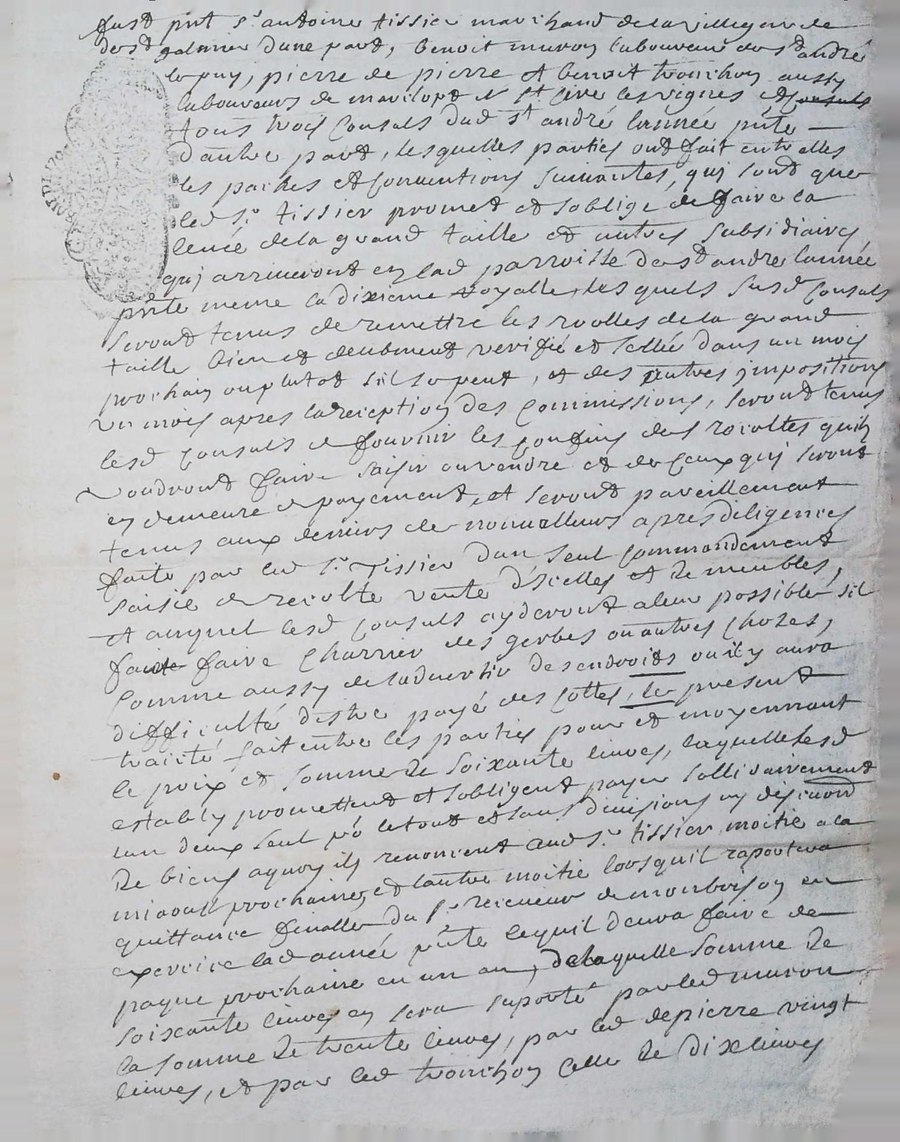 fust pnt sr antoine tissier marchand de la ville
de st galmier dune part, benoit muron laboureur de st andré
le puy, pierre de pierre et benoit tronchon aussy
laboureurs de marclopt et st cire les vignes
tous trois consuls dud st andré lannée pnte
dautre part, lesquelles parties ont fait entre elles
les paches et conventions suivantes, qui sont que
led sr tissier promet et soblige de faire la
levée de la grand taille et autres subsidiaires
qui arriveront en lad parroisse de st andre lannée
pnte meme la dixieme royalle, lesquels susd consuls
seront tenus de remettre les roolles de la grand
taille bien et deubment verifié et sellée dans un mois
prochain ou plutot sil se peut, et des autres impositions
un mois apres la reception des commissions, seront tenus
lesd consuls de fournir les confins des recoltes quils
voudront faire saisir ou vendre et de ceux qui seront
en demeure de payement, et seront pareillement
tenus aux deniers de nonvalleurs apres diligences
faite par led sr Tissier dun seul commandement
saisie de recolte vente dicelles et de meubles,
et auquel lesd consuls ayderont a leur possible sil
faut faire charrier des gerbes ou autres chozes,
comme aussy de laduertir des endroits ou il y aura
difficulté destre payé des cottes, le present
traité fait entre les parties pour et moyennant
le prix et somme de soixante livres, laquelle lesd
establys promettent et sobligent payer sollidairement
lun deux seul pr le tout et sans division ny discution
de biens a quoy ils renoncent aud sr tissier moitié a la
miaoust prochaine, et lautre moitié lorsquil raportera
quittance finalle du sr receveur de montbrison en
exercice lad année pnte lequil devra faire de
paque prochaine en un an, de laquelle somme de
soixante livres en sera suporté par led muron
la somme de trente livres, par led de pierre vingt
livres, et par led tronchon celle de dix livres